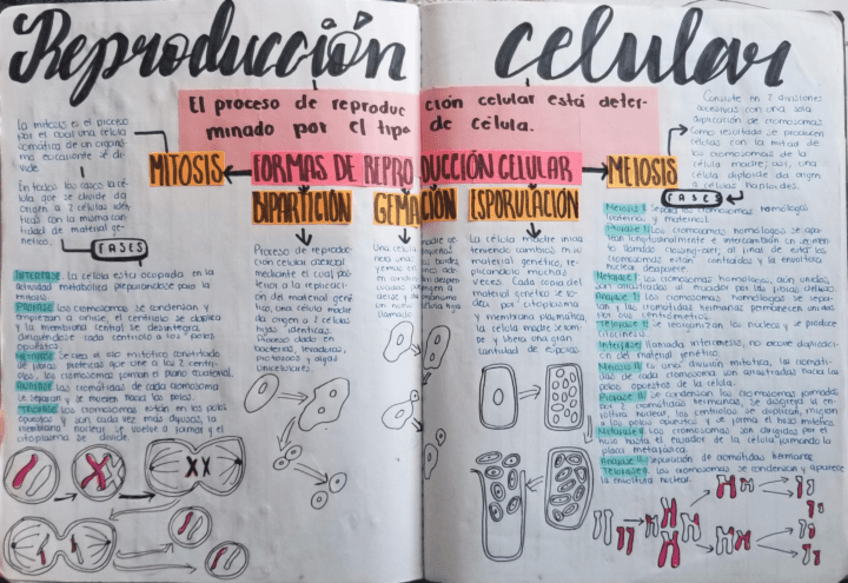 Reproducción celular
El proceso de reproducción celular está deter-
minado por el tipo de célula.
La mitosis es el proceso
por el cual una célula
somática de un organis-
mo eucarionte se di-
vide
En todos los casos la cé-
lula que se divide da
origen a 2 células idén-
ticas con la misma can-
tidad de material ge-
nético.
MITOSIS
FASES
INTERFASE: La célula esta ocupada en la
actividad metabólica preparandose para la
mitosis.
PROFASE: Los cromosomas se condensan y
empiezan a unirse, el centriolo se duplica
y la membrana central se desintegra,
dirigiéndose cada centriolo a los polos
opuestos.
METAFASE: Se crea el uso mitótico constituido
de fibras proteicas que une a los 2 centri-
olos, los cromosomas forman el plano ecuatorial.
ANAFASE: Las cromátidas de cada cromosoma
se separan y se mueven hacia los polos.
TELOFASE: Los cromosomas están en los polos
opuestos y son cada vez más difusos, la
membrana nuclear se vuelve a formar y el
citoplasma se divide.
FORMAS DE REPRODUCCIÓN CELULAR
BIPARTICIÓN
Proceso de reproduc-
ción celular asexual
mediante el cual pos-
terior a la replicación
del material gené-
tico, una célula madre
da origen a 2 células
hijas identicas.
Proceso dado en
bacterias, levaduras,
protozoos y algas
unicelulares.
GEMACIÓN
Una célula madre
ESPORULACIÓN
La célula madre inicia
teniendo cambios en su
material genético, re-
plicandolo muchas
veces. Cada copia del
material genético se ro-
dea por citoplasma
y membrana plasmática,
la célula madre se rom-
pe y libera una gran
cantidad de esporas.
MEIOSIS
Consiste en 2 divisiones
sucesivas con una sola
duplicación de cromosomas
como resultado se producen
células con la mitad de
los cromosomas de la
célula madre; así, una
célula diploide da origen
a células haploides.
FASES
Meiosis I: Separa los cromosomas homólogos
(paterno y materno).
Profase I: Los cromosomas homólogos se apa-
rean longitudinalmente e intercambian un segmen-
to llamado crossing-over, al final de esta los
cromosomas están contraídos y la envoltura
nuclear desaparece.
Metafase I: Los cromosomas homólogos, aún unidos,
son arrastrados al ecuador por las fibras del uso.
Anafase I: Los cromosomas homólogos se sepa-
ran y las cromátidas hermanas permanecen unidas
por sus centrómeros.
Telofase I: Se reorganizan los nucleos y se produce
citocinesis.
Interfase: Llamada intercinesis, no ocurre duplicaci-
ón del material genético.
Meiosis II: Es una división mitótica, las cromáti-
das de cada cromosoma son arrastradas hacia los
polos opuestos de la célula.
Profase II: Se condensan los cromosomas formados
por 2 cromátidas hermanas, se disgrega la en-
voltura nuclear, los centriolos se duplican, migran
a los polos opuestos y se forma el huso mitótico
Metafase II: Los cromosomas son dirigidos por el
huso hasta el ecuador de la célula formando la
placa metafásica.
Anafase II: Separación de cromátidas hermanas.
Telofase II: Los cromosomas se condensan y aparece
la envoltura nuclear.